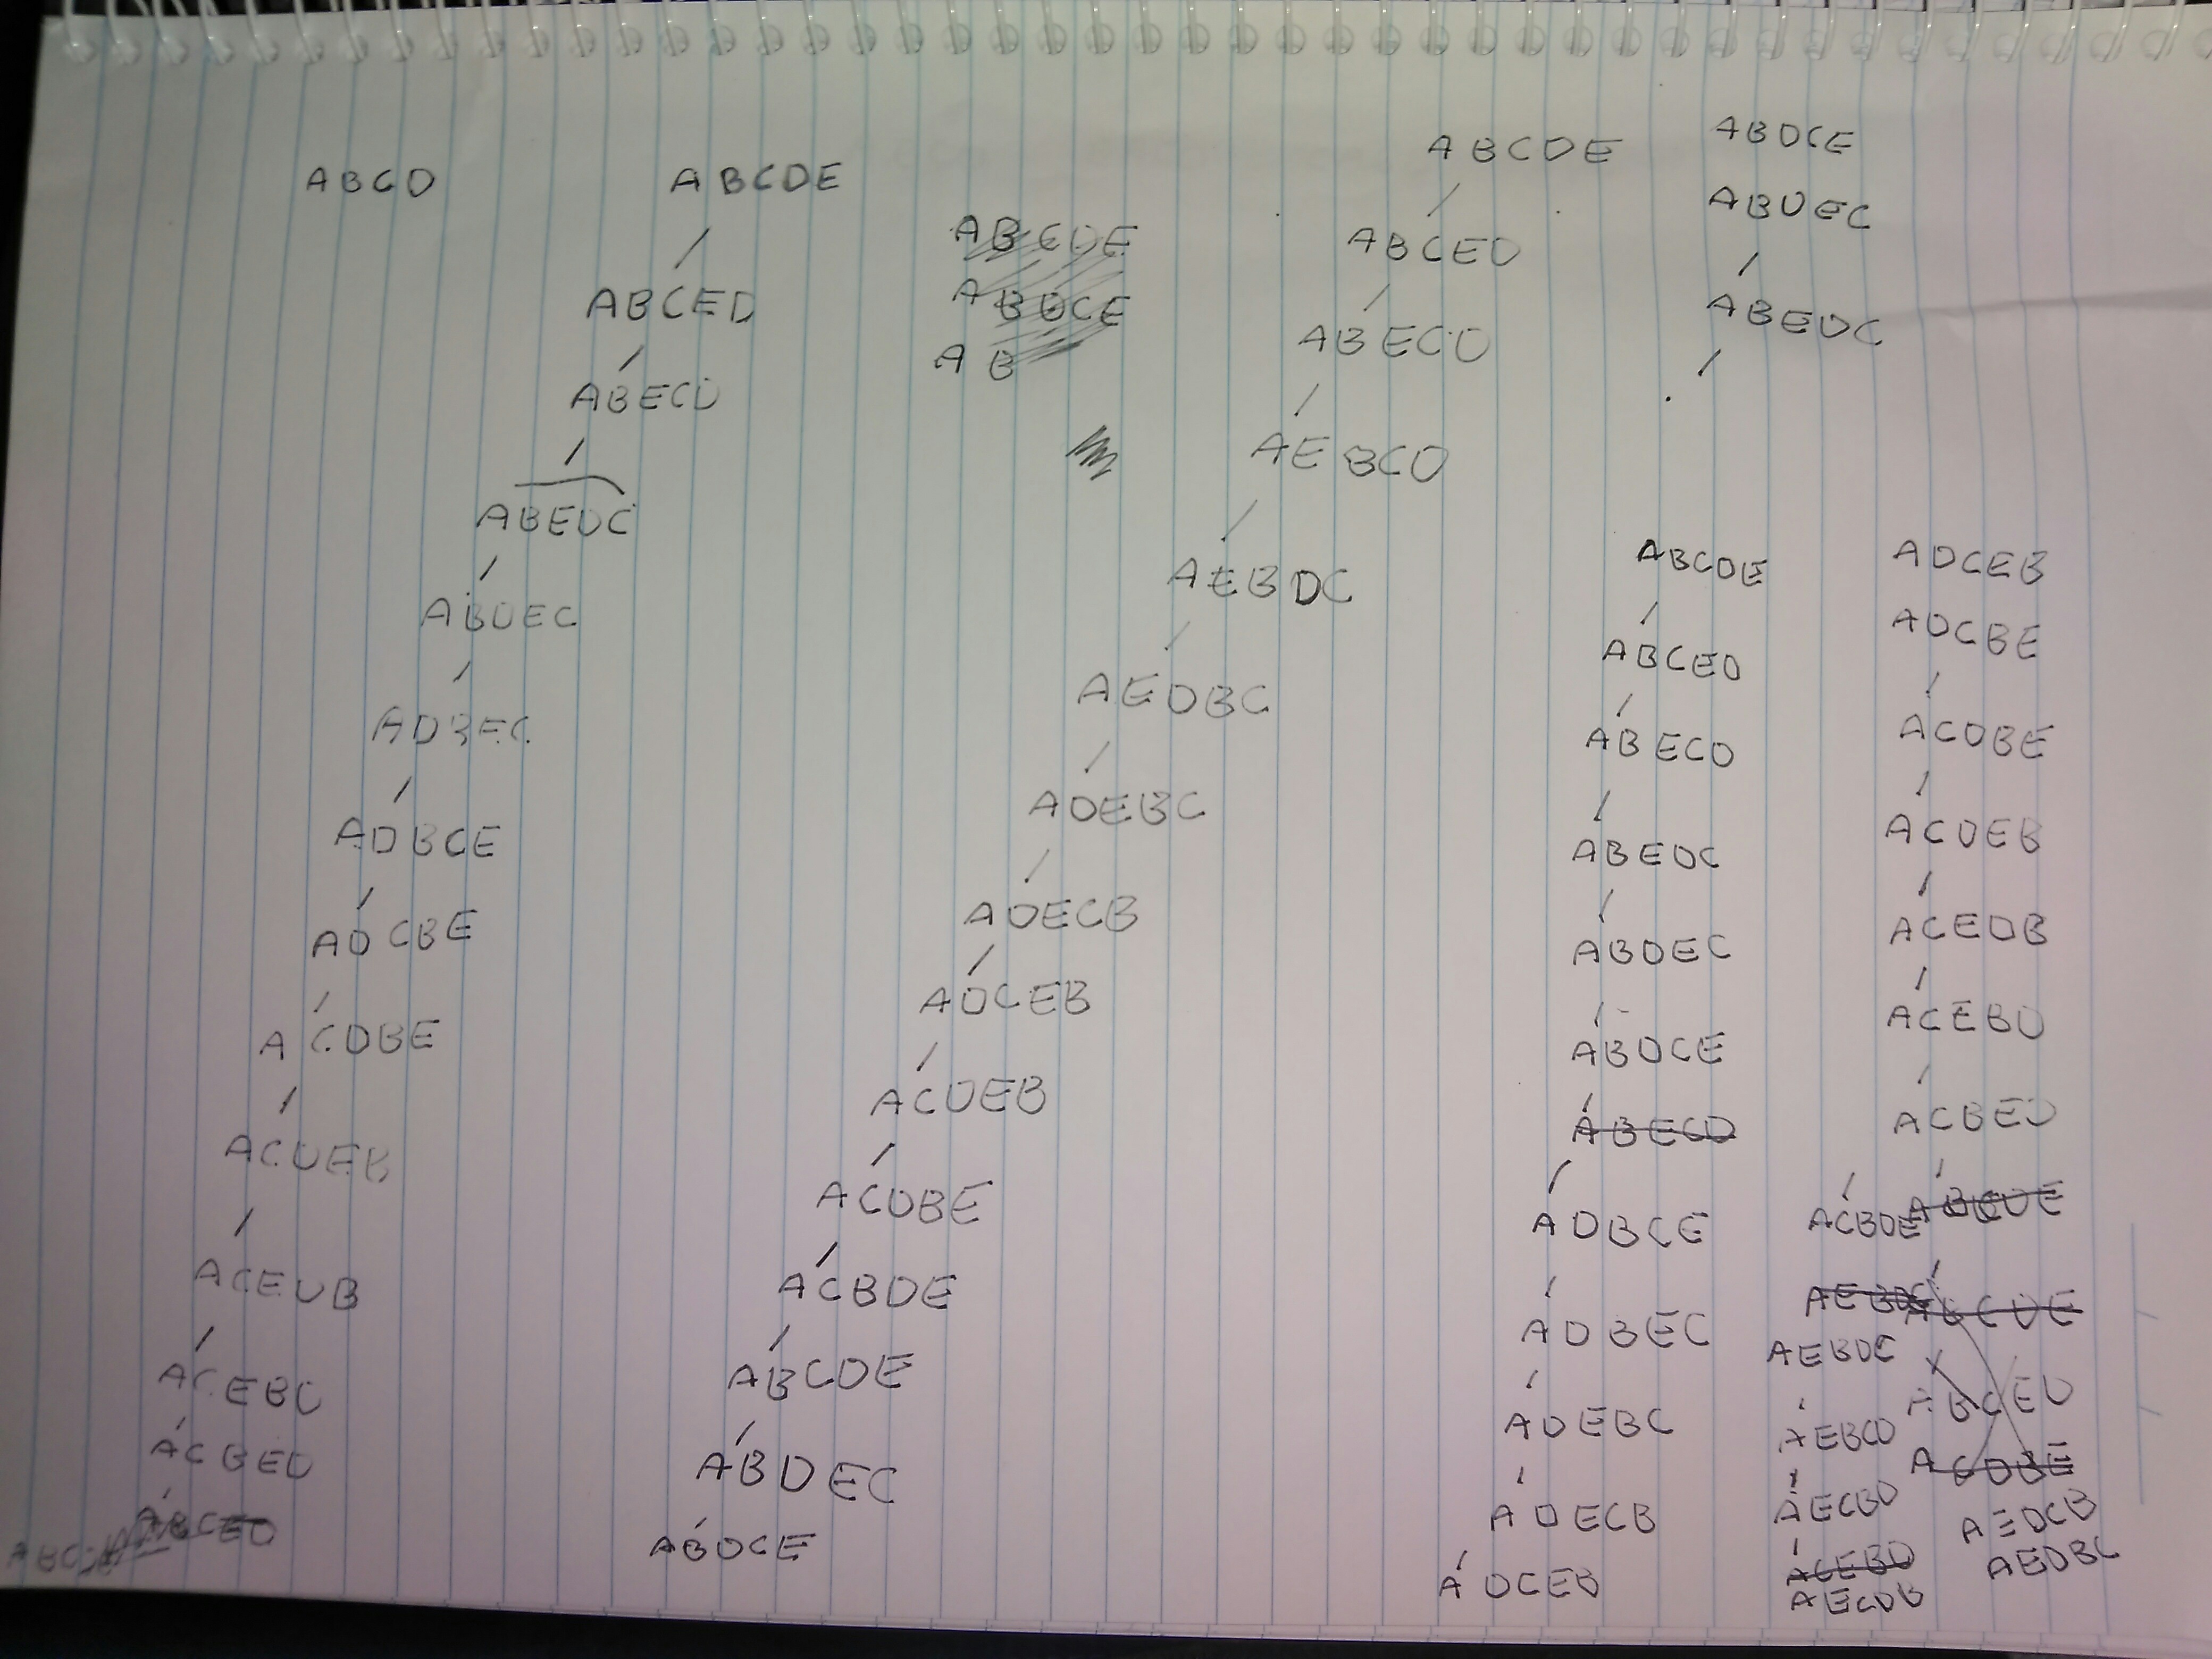 ABCD
ABCDE
ABCED
ABECD
ABEDC
ABDEC
ADBEC
ADBCE
ADCBE
ACDBE
ACDEB
ACEDB
ACBED
ABCED
ABCDE
ABDCE
AB
ABCDE
ABCED
ABECD
AEBCD
AEBDC
AEDBC
ADEBC
ADECB
ADCEB
ACDEB
ACDBE
ACBDE
ABCDE
ABDEC
ABDCE
ABDCE
ABDEC
ABEDC
ABCDE
ABCED
ABECD
ABEDC
ABDEC
ABDCE
ABECD
ADBCE
ADBEC
ADEBC
ADECB
ADCEB
ADCEB
ADCBE
ACDBE
ACDEB
ACEDB
ACEBD
ACBED
ABCDE
ACBDE
ABCDE
AEBDC
AEBDC
ABCED
AEBCD
ACDBE
AECBD
ACEBD
AECDB
AEDCB
AEDBC